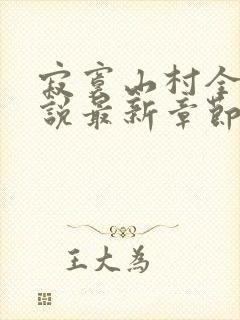 寂寞山村全
說最新章節
王大為